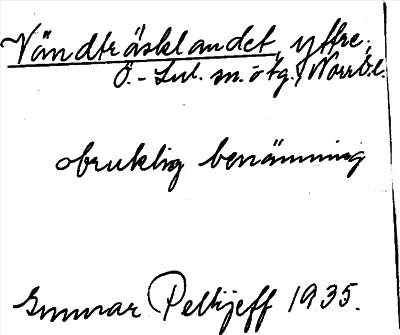 Vändträsklandet, yttre,
Ö.-Lul. sn. ötg., Norrb. l.
obruklig benämning
Gunnar Pellijeff 1935.